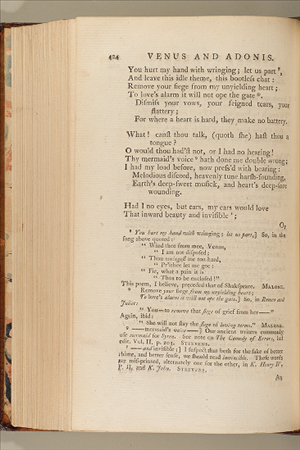 424 VENUS AND ADONIS.
You hurt my hand with wringing; let us part ⁷,
And leave this idle theme, this bootless chat:
Remove your siege from my unyielding heart;
To love's alarm it will not ope the gate ⁸.
Dismiss your vows, your feigned tears, your
flattery;
For where a heart is hard, they make no battery.
What! canst thou talk, (quoth she) hast thou a
tongue?
O would thou had'st not, or I had no hearing!
Thy mermaid's voice ⁹ hath done me double wrong;
I had my load before, now press'd with bearing:
Melodious discord, heavenly tune harsh-sounding,
Earth's deep-sweet musick, and heart's deep-sore
wounding.
Had I no eyes, but ears, my ears would love
That inward beauty and invisible ¹;
Or
⁷ You hurt my hand with wringing; let us part,] So, in the
song above quoted:
" Wind thee from men, Venus,
" I am not disposed;
" Thou wringest me too hard,
" Pr'ythee let me goe;
" Fie, what a pain it is
" Thus to be enclosed!"
This poem, I believe, preceded that of Shakspeare. MALONE.
⁸ Remove your siege from my unyielding heart;
To love's alarm it will not ope the gate.] So, in Romeo and
Juliet:
" You—to remove that siege of grief from her——"
Again, ibid:
" She will not stay the siege of loving terms." MALONE.
⁹ —mermaid's voice—] Our ancient writers commonly
use mermaid for Syren. See note on The Comedy of Errors, last
edit. Vol. II. p. 203. STEEVENS.
¹ —and invisible;] I suspect that both for the sake of better
rhime, and better sense, we should read invincible. These words
are mis-printed, alternately one for the other, in K. Henry IV,
P. II, and K. John. STEEVENS.